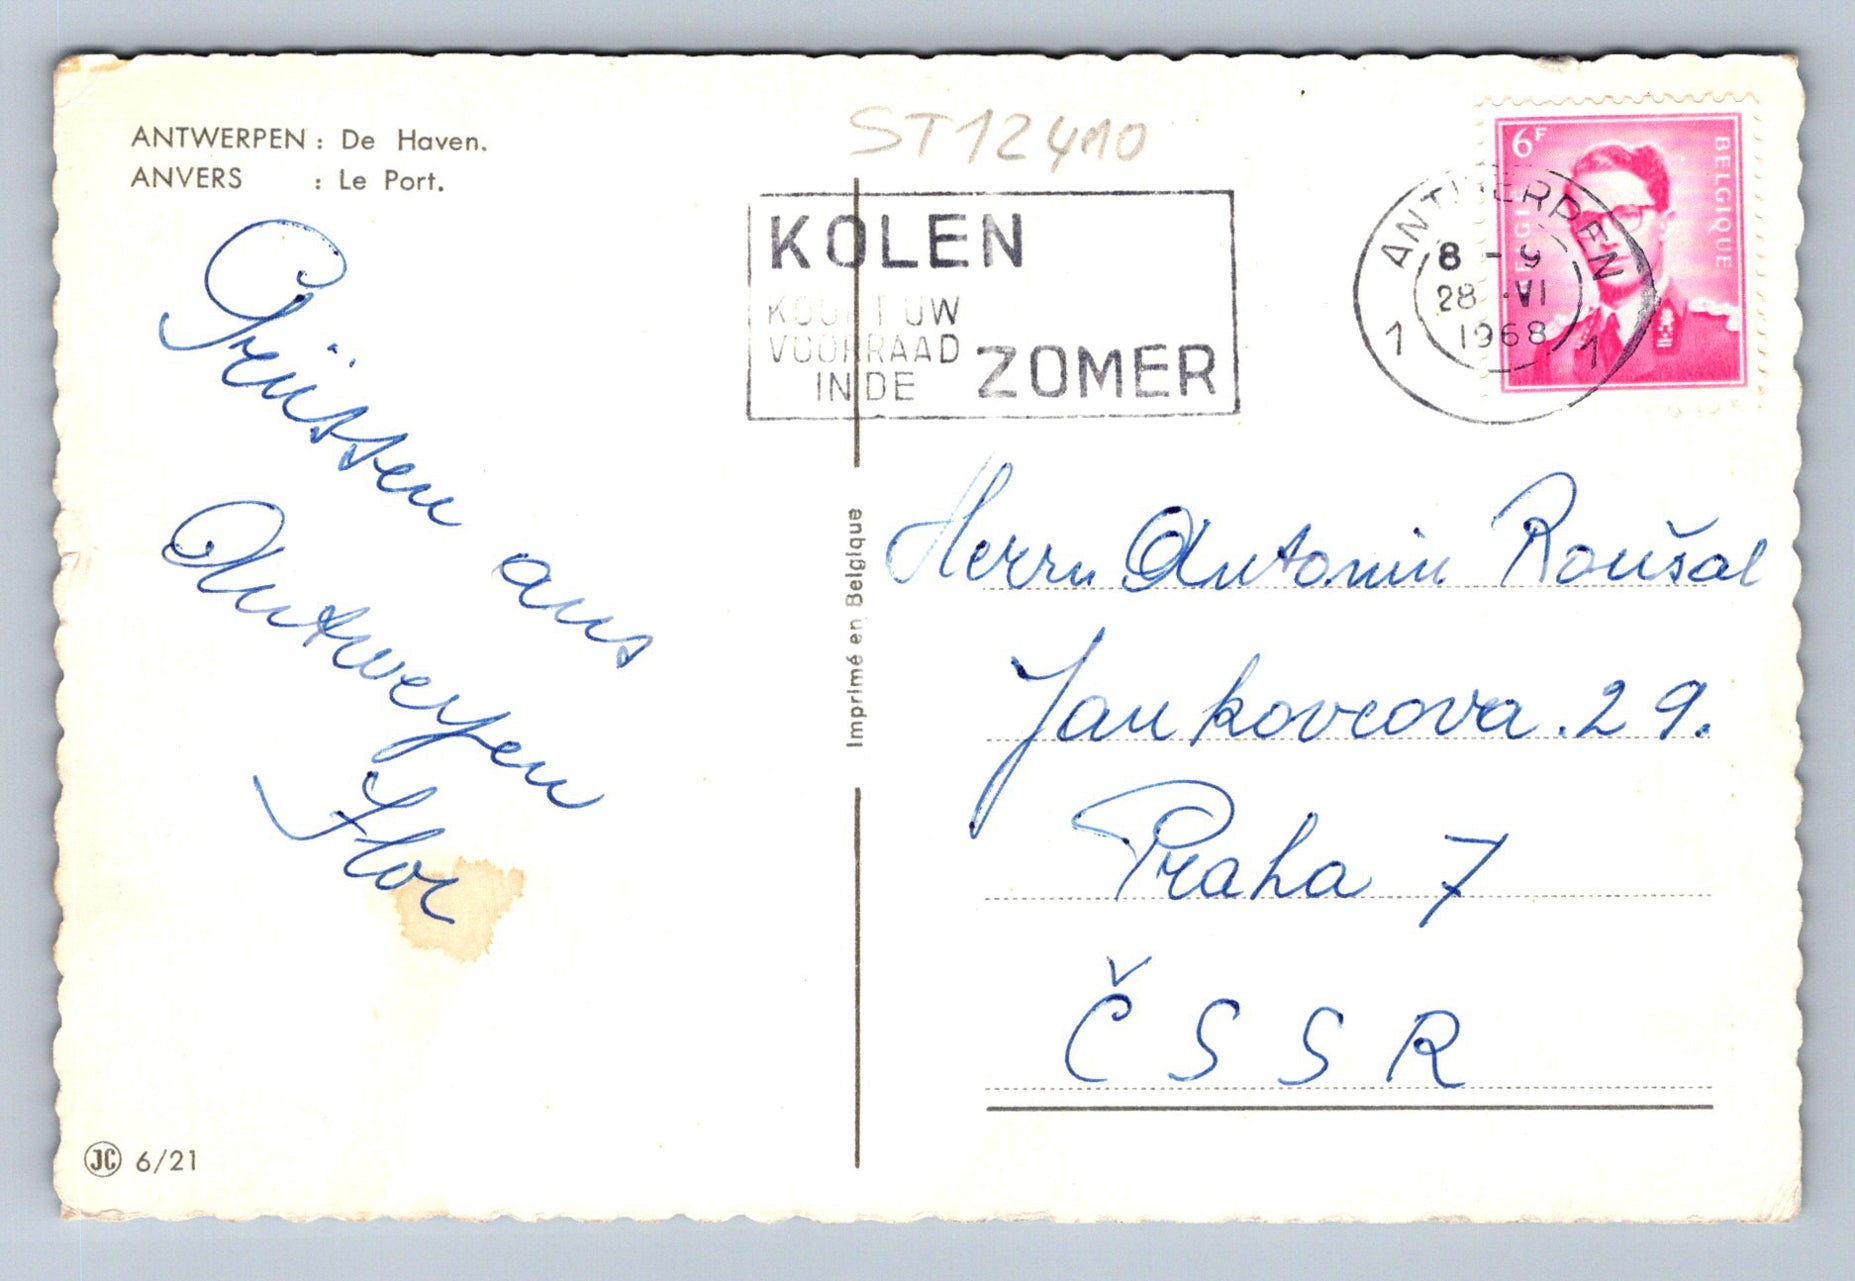 ANTWERPEN : De Haven.
ANVERS : Le Port.
ST12410
KOLEN
KOOPT UW
VOORRAAD
IN DE
ZOMER
6F
BELGIQUE
BELGIE
ANTWERPEN
8 - 9
28 VI
1968
1 1
Grüssen aus
Antwerpen
Flor
Imprimé en Belgique
Herrn Antonin Roušal
Jankovcova. 29.
Praha 7
ČSSR
JC 6/21